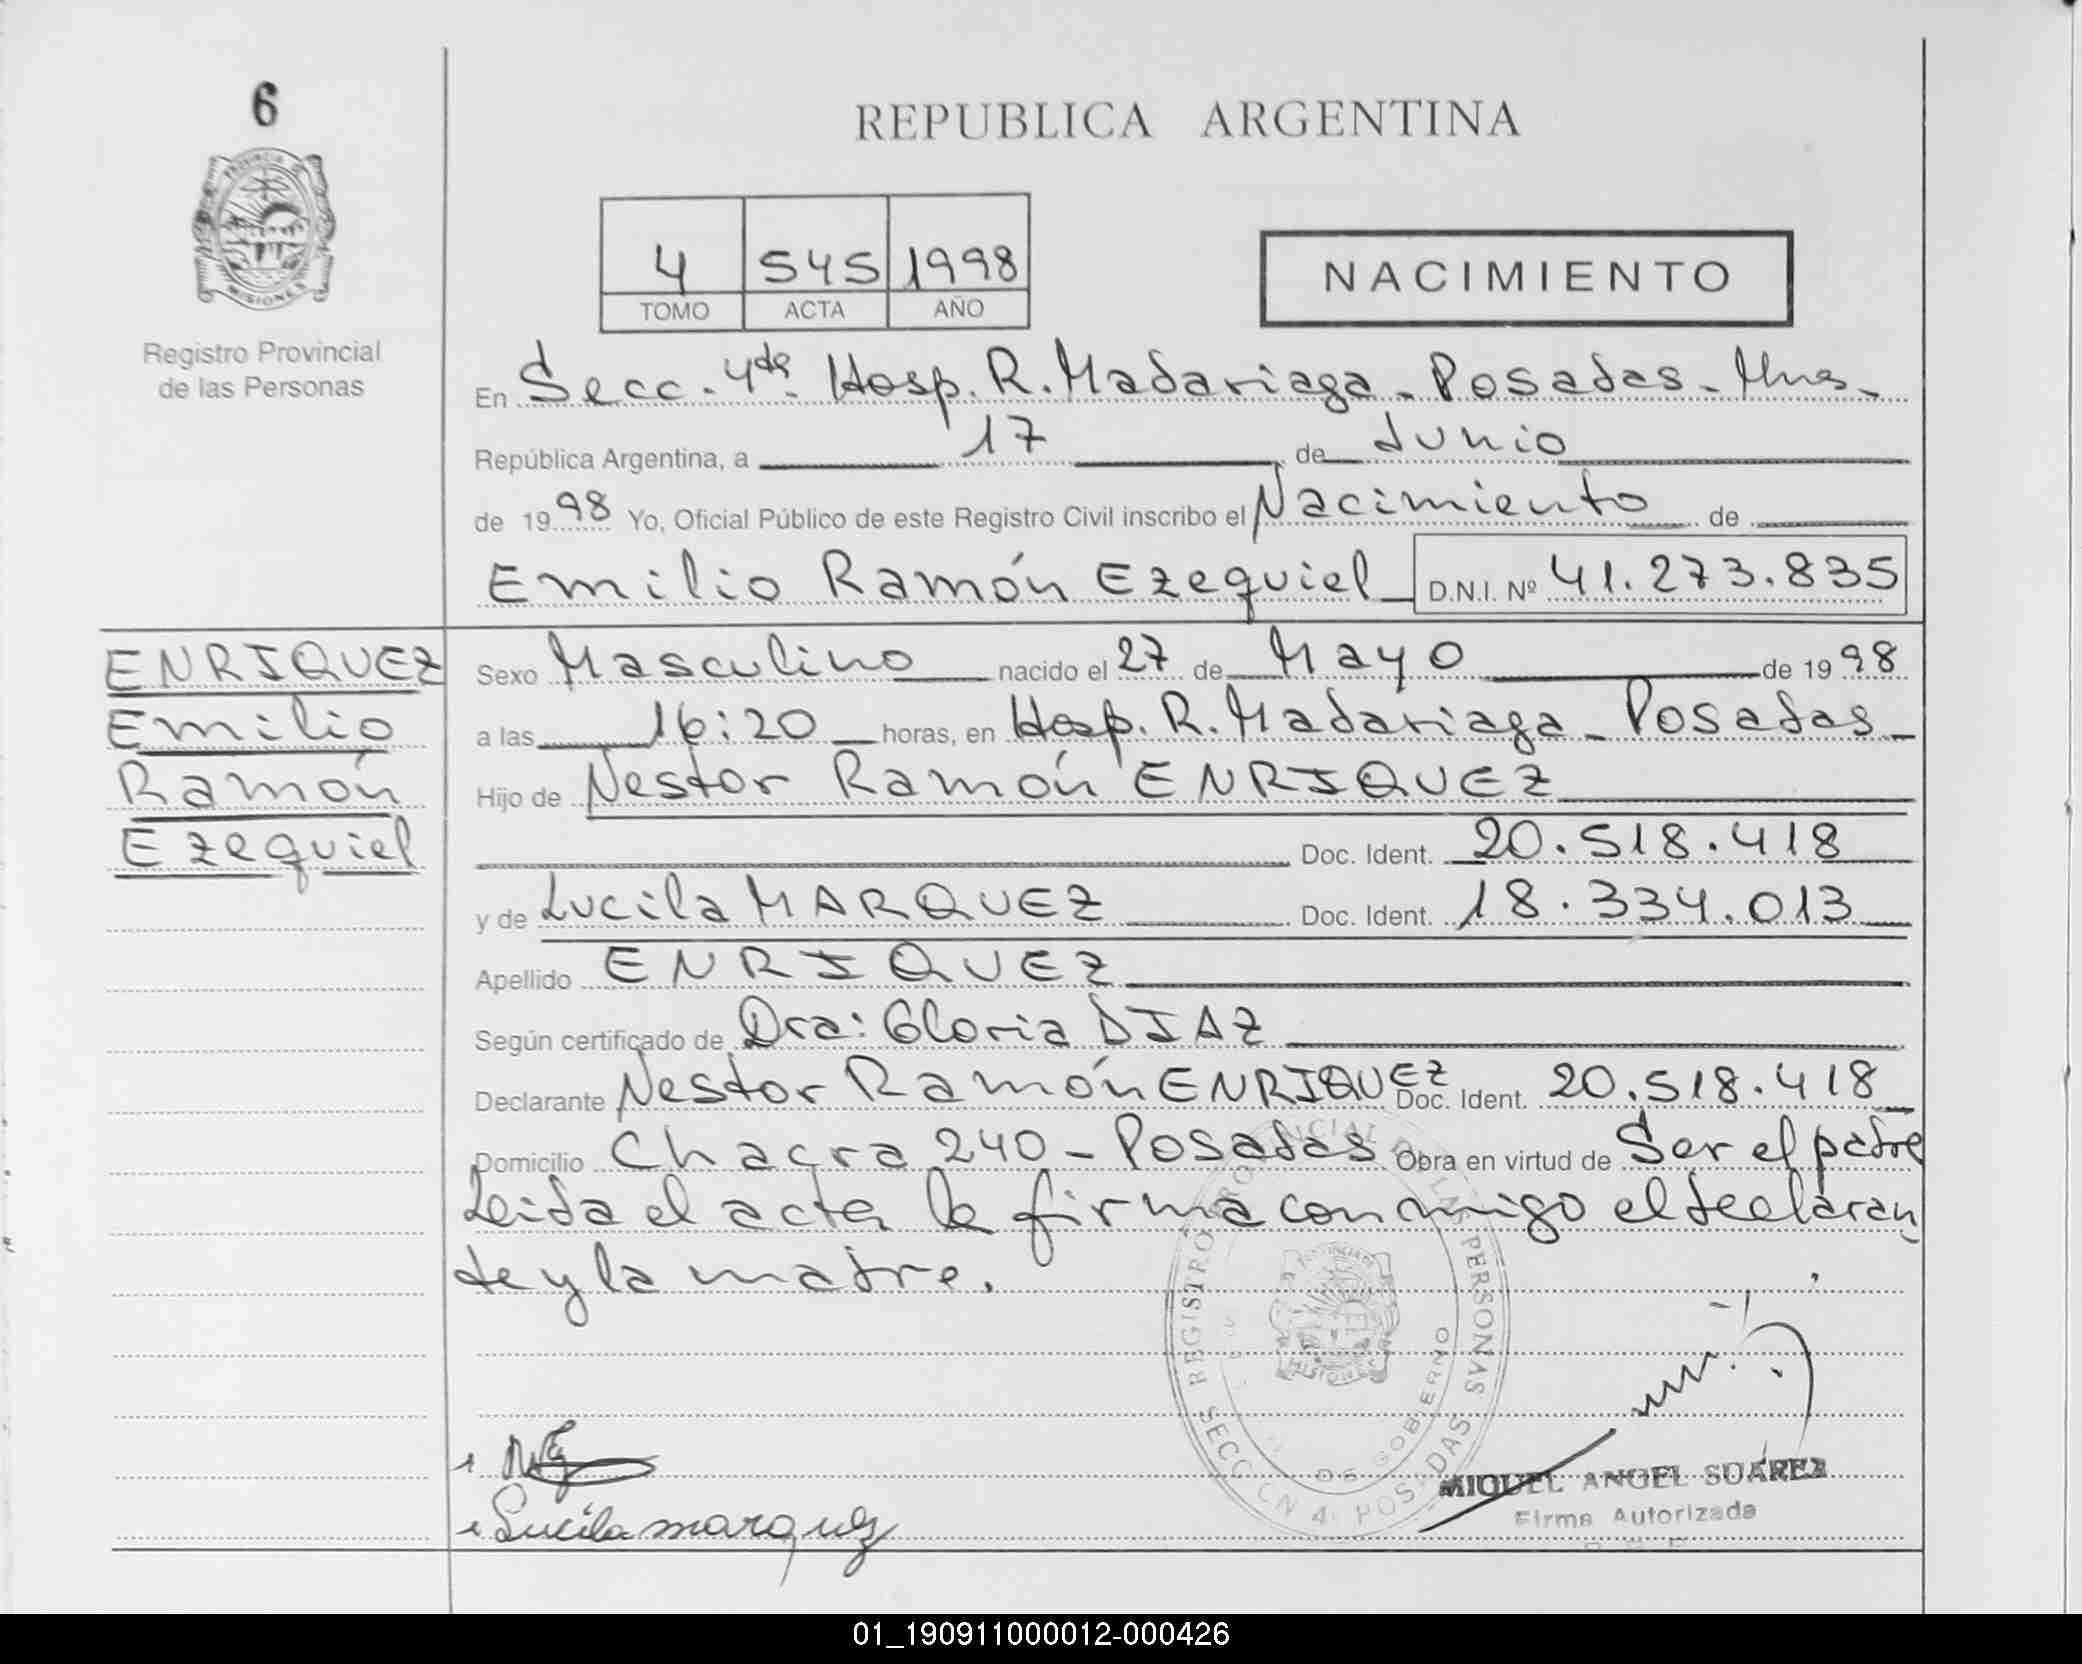 6
REPUBLICA ARGENTINA
PROVINCIA DE
MISIONES
Registro Provincial
de las Personas
4 545 1998
TOMO ACTA AÑO
NACIMIENTO
En Secc. 4ta. Hosp. R. Madariaga - Posadas - Mnes -
República Argentina, a 17 de Junio
de 1998 Yo, Oficial Público de este Registro Civil inscribo el Nacimiento de
Emilio Ramón Ezequiel D.N.I. Nº 41.273.835
ENRIQUEZ
Emilio
Ramón
Ezequiel
Sexo Masculino nacido el 27 de Mayo de 1998
a las 16:20 horas, en Hosp. R. Madariaga - Posadas -
Hijo de Nestor Ramón ENRIQUEZ
Doc. Ident. 20.518.418
y de Lucila MARQUEZ Doc. Ident. 18.334.013
Apellido ENRIQUEZ
Según certificado de Dra: Gloria DIAZ
Declarante Nestor Ramón ENRIQUEZ Doc. Ident. 20.518.418
Domicilio Chacra 240 - Posadas Obra en virtud de Ser el padre
Leida el acta la firma conmigo el declaran
te y la madre.
REGISTRO PROVINCIAL DE LAS PERSONAS
SECC CN 4 POSADAS
DE GOBIERNO
MISIONES
Lucila marquez
MIGUEL ANGEL SUÁREZ
Firma Autorizada
01_190911000012-000426